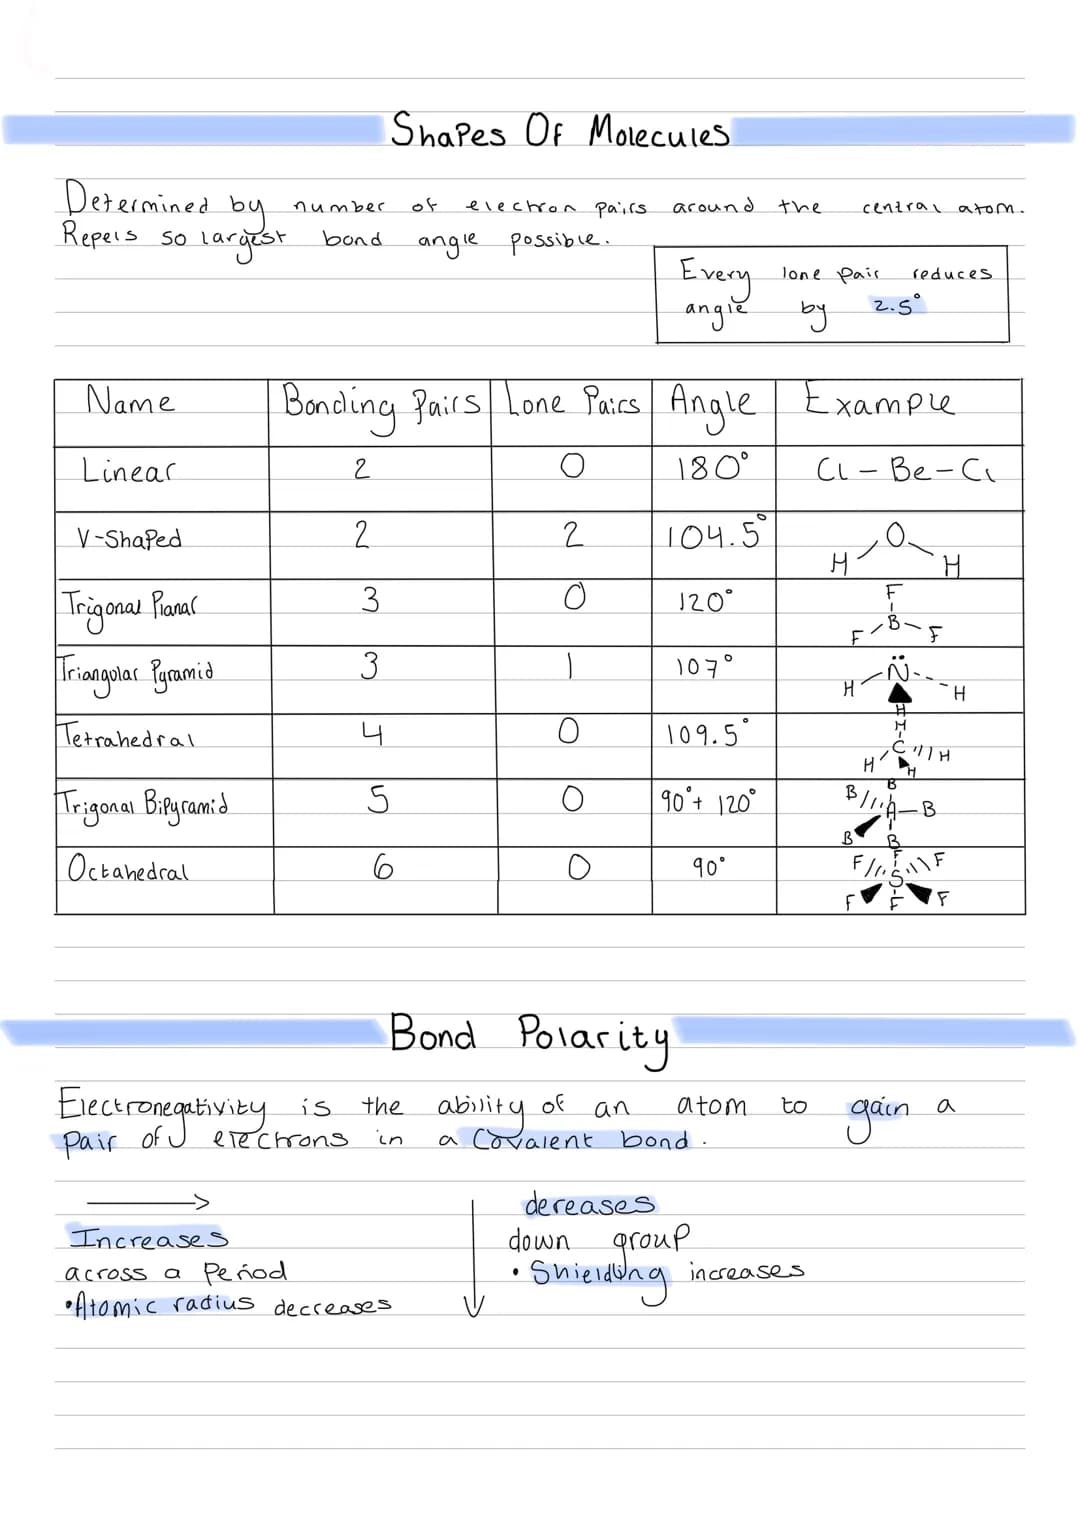 Shapes Of Molecules
Determined by number of electron pairs around the central atom.
Repels so largest bond angle possible.
Every lone pair reduces
angle by 2.5°
Name Bonding Pairs Lone Pairs Angle Example
Linear 2 0 180° Cl - Be - Cl
V-Shaped 2 2 104.5° O H H
Trigonal Planar 3 0 120° F B F F
Triangular Pyramid 3 1 107° N H H H
Tetrahedral 4 0 109.5° H C H H H
Trigonal Bipyramid 5 0 90°+ 120° B B A B B B
Octahedral 6 0 90° F F F S F F F
Bond Polarity
Electronegativity is the ability of an atom to gain a
pair of electrons in a covalent bond.
Increases
across a Period
•Atomic radius decreases
dereases
down group
• Shieldling increases